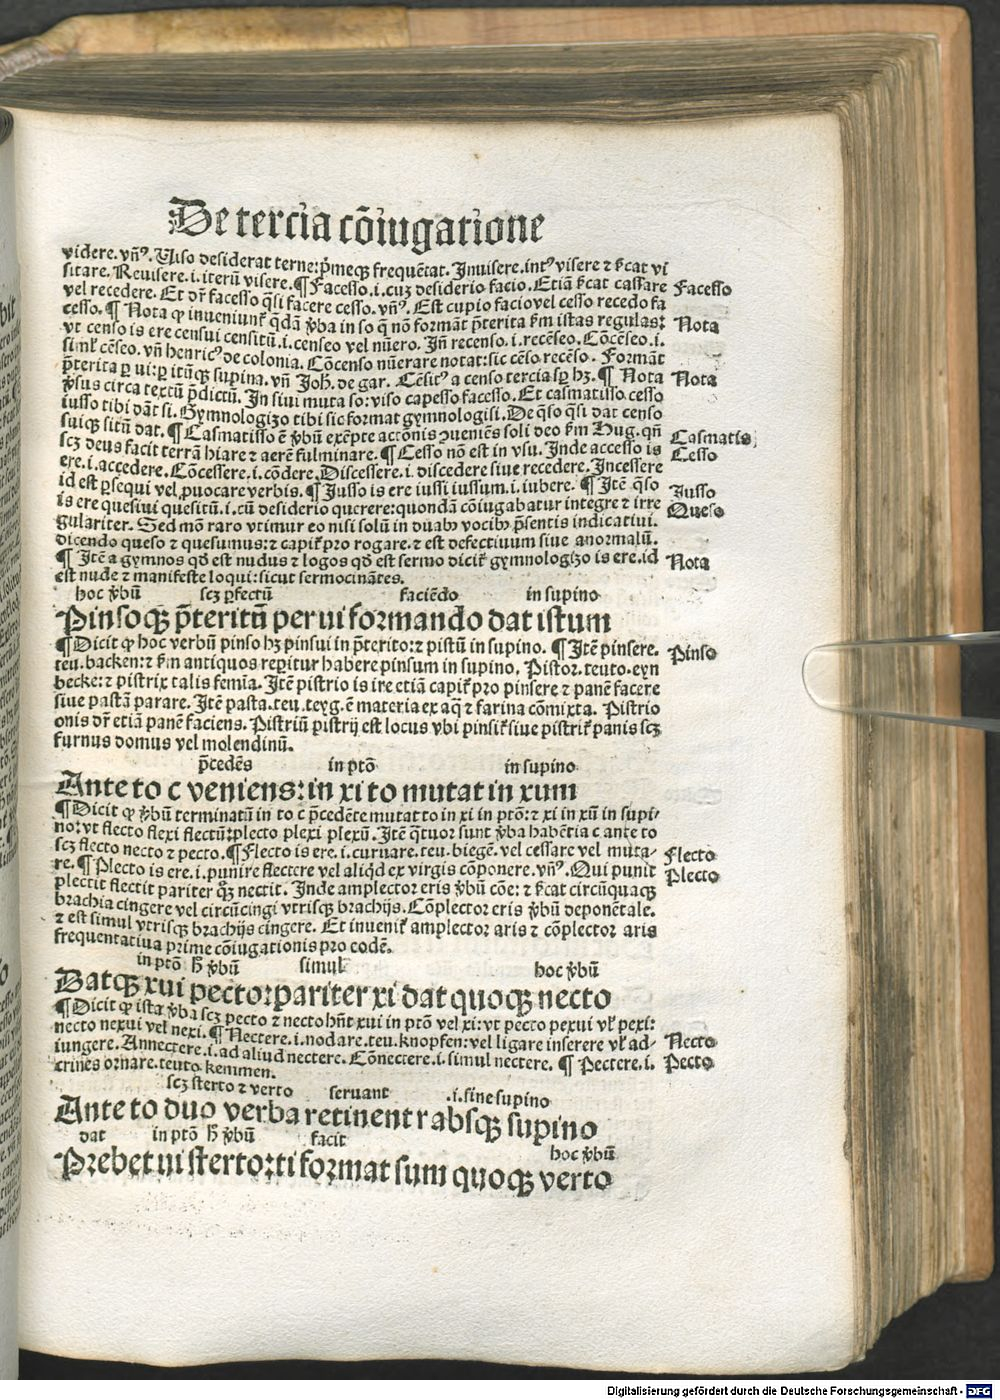 De tercia cõiugatione
videre. vñꝰ. Uiso desiderat terne: p̃meqꝫ frequẽtat. Inuisere. intꝰ visere ⁊ ẜcat vi
sitare. Reuisere. i. iterũ visere. ¶ Facesso. i. cuꝫ desiderio facio. Etiã ẜcat cassare Facesso
vel recedere. Et dr̃ facesso q̃si facere cesso. vñꝰ. Est cupio facio vel cesso recedo fa
cesso. ¶ Nota ꝙ inueniunt̃ q̃dã ꝟba in so q̃ nõ formãt p̃terita ẜm istas regulas: Nota
vt censo is ere censui censitũ. i. censeo vel nũero. Iñ recenso. i. recẽseo. Cõcẽseo. i.
simĺ cẽseo. vñ henricꝰ de colonia. Cõcenso nũerare notat: sic cẽso recẽso. Formãt
p̃terita ꝑ ui: ꝑ itũqꝫ supina. vñ Joh̃. de gar. Cẽsitꝰ a censo tercia sꝑ hꝫ. ¶ Nota Nota
ꝟsus circa textũ p̃dictũ. In siui muta so: viso capesso facesso. Et casmatisso cesso
iusso tibi dãt si. Gymnologizo tibi sic format gymnologisi. De q̃so q̃si dat censo
suiqꝫ sitũ dat. ¶ Casmatisso ẽ ꝟbũ exẽpte actõnis ꝯueniẽs soli deo ẜm Hug. qñ Casmatis
scꝫ deus facit terrã hiare ⁊ aerẽ fulminare. ¶ Cesso nõ est in vsu. Inde accesso is Cesso
ere. i. accedere. Cõcessere. i. cõdere. Discessere. i. discedere siue recedere. Incessere
id est ꝑsequi vel ꝓuocare verbis. ¶ Iusso is ere iussi iussum. i. iubere. ¶ Itẽ q̃so Iusso
is ere quesiui quesitũ. i. cũ desiderio querere: quondã cõiugabatur integre ⁊ irre Queso
gulariter. Sed mõ raro vtimur eo nisi solũ in duabꝰ vocibꝰ p̃sentis indicatiui.
dicendo queso ⁊ quesumus: ⁊ capit̃ pro rogare. ⁊ est defectiuum siue anormalũ.
¶ Itẽ a gymnos qđ est nudus ⁊ logos qđ est sermo dicit̃ gymnologizo is ere. id Nota
est nude ⁊ manifeste loqui: sicut sermocinãtes.
hoc ꝟbũ scꝫ ꝑfectũ faciẽdo in supino
Pinsoqꝫ p̃teritũ per ui formando dat istum
¶ Dicit ꝙ hoc verbũ pinso hꝫ pinsui in p̃terito: ⁊ pistũ in supino. ¶ Itẽ pinsere. Pinso
teu. backen: ⁊ ẜm antiquos repitur habere pinsum in supino. Pistor. teuto. eyn
becke: ⁊ pistrix talis femĩa. Itẽ pistrio is ire etiã capit̃ pro pinsere ⁊ panẽ facere
siue pastã parare. Itẽ pasta. teu. teyg. ẽ materia ex aq̃ ⁊ farina cõmixta. Pistrio
onis dr̃ etiã panẽ faciens. Pistriũ pistrij est locus vbi pinsit̃ siue pistrit̃ panis scꝫ
furnus domus vel molendinũ.
p̃cedẽs in ptõ in supino
Ante to c veniens: in xi to mutat in xum
¶ Dicit ꝙ ꝟbũ terminatũ in to c p̃cedẽte mutat to in xi in ptõ: ⁊ xi in xũ in supi-
no: vt flecto flexi flectũ: plecto plexi plexũ. Itẽ q̃tuor sunt ꝟba habẽtia c ante to
scꝫ flecto necto ⁊ pecto. ¶ Flecto is ere. i. curuare. teu. biegẽ. vel cessare vel muta- Flecto
re. ¶ Plecto is ere. i. punire flectere vel aliqđ ex virgis cõponere. vñꝰ. Qui punit Plecto
plectit flectit pariter qꝫ nectit. Inde amplector eris ꝟbũ cõe: ⁊ ẜcat circũquaqꝫ
brachia cingere vel circũcingi vtrisqꝫ brachijs. Cõplector eris ꝟbũ deponẽtale.
⁊ est simul vtrisqꝫ brachijs cingere. Et inuenit̃ amplector aris ⁊ cõplector aris
frequentatiua prime cõiugationis pro codẽ.
in ptõ h̃ ꝟbũ simul hoc ꝟbũ
Datqꝫ xui pecto: pariter xi dat quoqꝫ necto
¶ Dicit ꝙ ista ꝟba scꝫ pecto ⁊ necto hñt xui in ptõ vel xi: vt pecto pexui vĺ pexi:
necto nexui vel nexi. ¶ Nectere. i. nodare. teu. knopfen: vel ligare inserere vĺ ad- Necto
iungere. Annectere. i. ad aliud nectere. Cõnectere. i. simul nectere. ¶ Pectere. i. Pecto
crines ornare. teuto kemmen.
scꝫ sterto ⁊ verto seruant .i. sine supino
Ante to duo verba retinent r absqꝫ supino
dat in ptõ h̃ ꝟbũ facit hoc ꝟbũ
Prebet ui sterto: ti format sum quoqꝫ verto
Digitalisierung gefördert durch die Deutsche Forschungsgemeinschaft - DFG